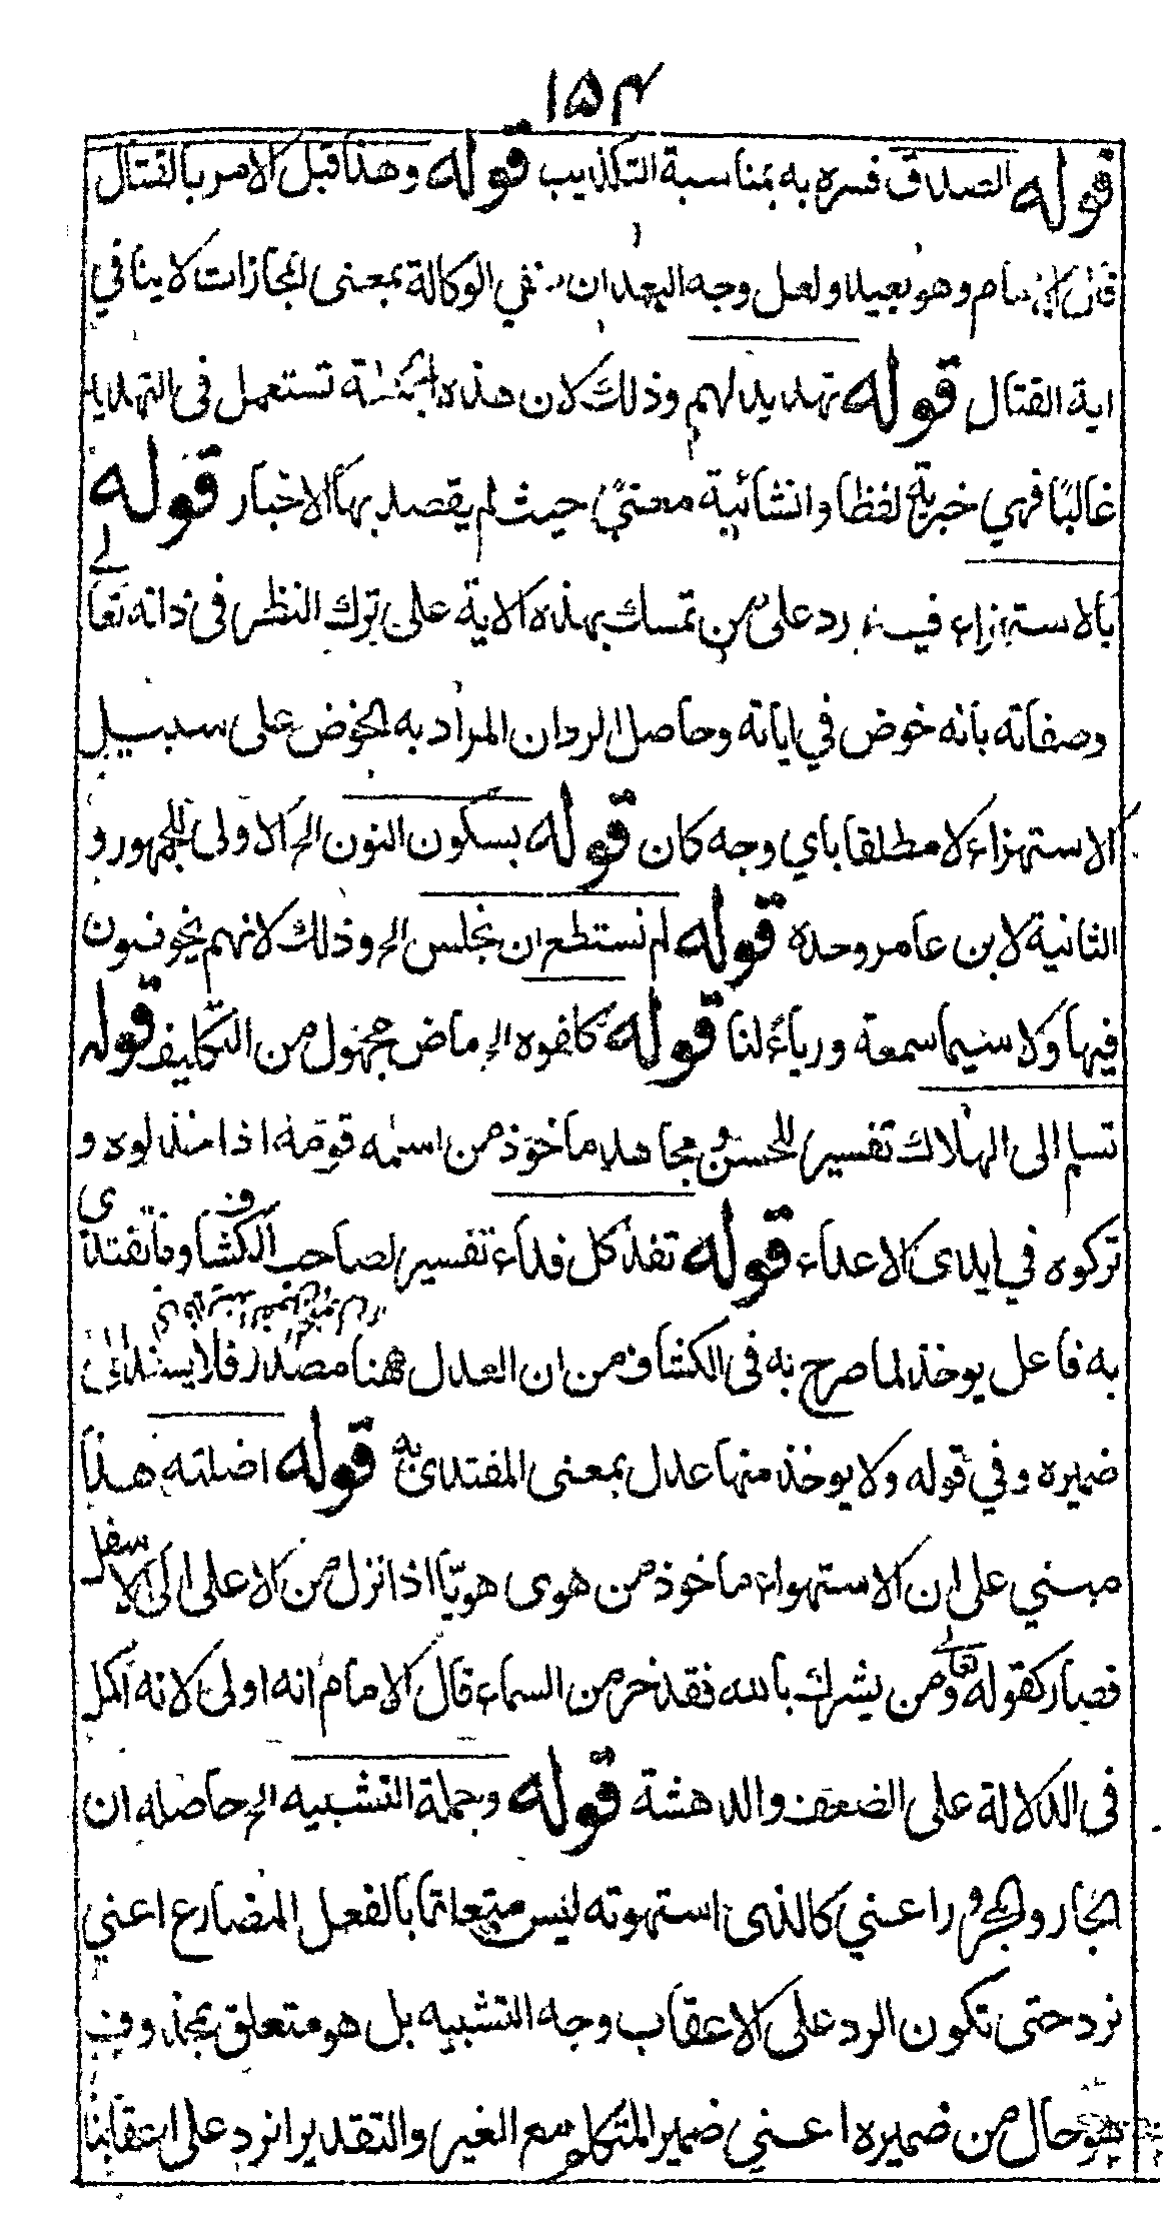 ١٥٤
قوله الصدق فسره به بمناسبة التكذيب قوله وهذا قبل الامر بالقتال
قال الامام وهو بعيد ولعل وجه البعد ان نفي الوكالة بمعنى المجازات لا ينافي
اية القتال قوله تهديد لهم وذلك لان هذه تستعمل في التهديد
غالبًا فهي خبرية لفظا وانشائية معنىً حيث لم يقصد بها الاخبار قوله
بالاستهزاء فيه رد على من تمسك بهذه الاية على ترك النظر في ذاته تعالى
وصفاته بانه خوض في اياته وحاصل الرد ان المراد به الخوض على سبيل
الاستهزاء لا مطلقا باي وجه كان قوله بسكون النون الخ الاولى للجمهور و
الثانية لابن عامر وحده قوله لم نستطع ان نجلس الخ وذلك لانهم يخوضون
فيها ولا سيما سمعة ورياءً لنا قوله كافوه الخ ماض مجهول من التكليف قوله
تسلم الى الهلاك تفسير للحسن ومجاهد ماخوذ من اسلمه قومه اذا خذلوه و
تركوه في ايدي الاعداء قوله تفد كل فداء تفسير لصاحب الكشاف وما تفتدى
به فاعل يوخذ لما صرح به في الكشاف من ان العدل ههنا مصدر فلا يسند الى
ضميره وفي قوله ولا يوخذ منها عدل بمعنى المفتدى به قوله اضلته هذا
مبني على ان الاستهواء ماخوذ من هوى هويّا اذا نزل من الاعلى الى الاسفل
فصار كقوله تعالى ومن يشرك بالله فقد خر من السماء قال الامام انه اولى لانه اكمل
في الدلالة على الضعف والدهشة قوله وجملة التشبيه الخ حاصله ان
الجار والمجرور اعني كالذى استهوته ليس متعلقا بالفعل المضارع اعني
نرد حتى تكون الرد على الاعقاب وجه التشبيه بل هو متعلق بمحذوف
هو حال من ضميره اعني ضمير المتكلم مع الغير والتقدير انرد على اعقابنا